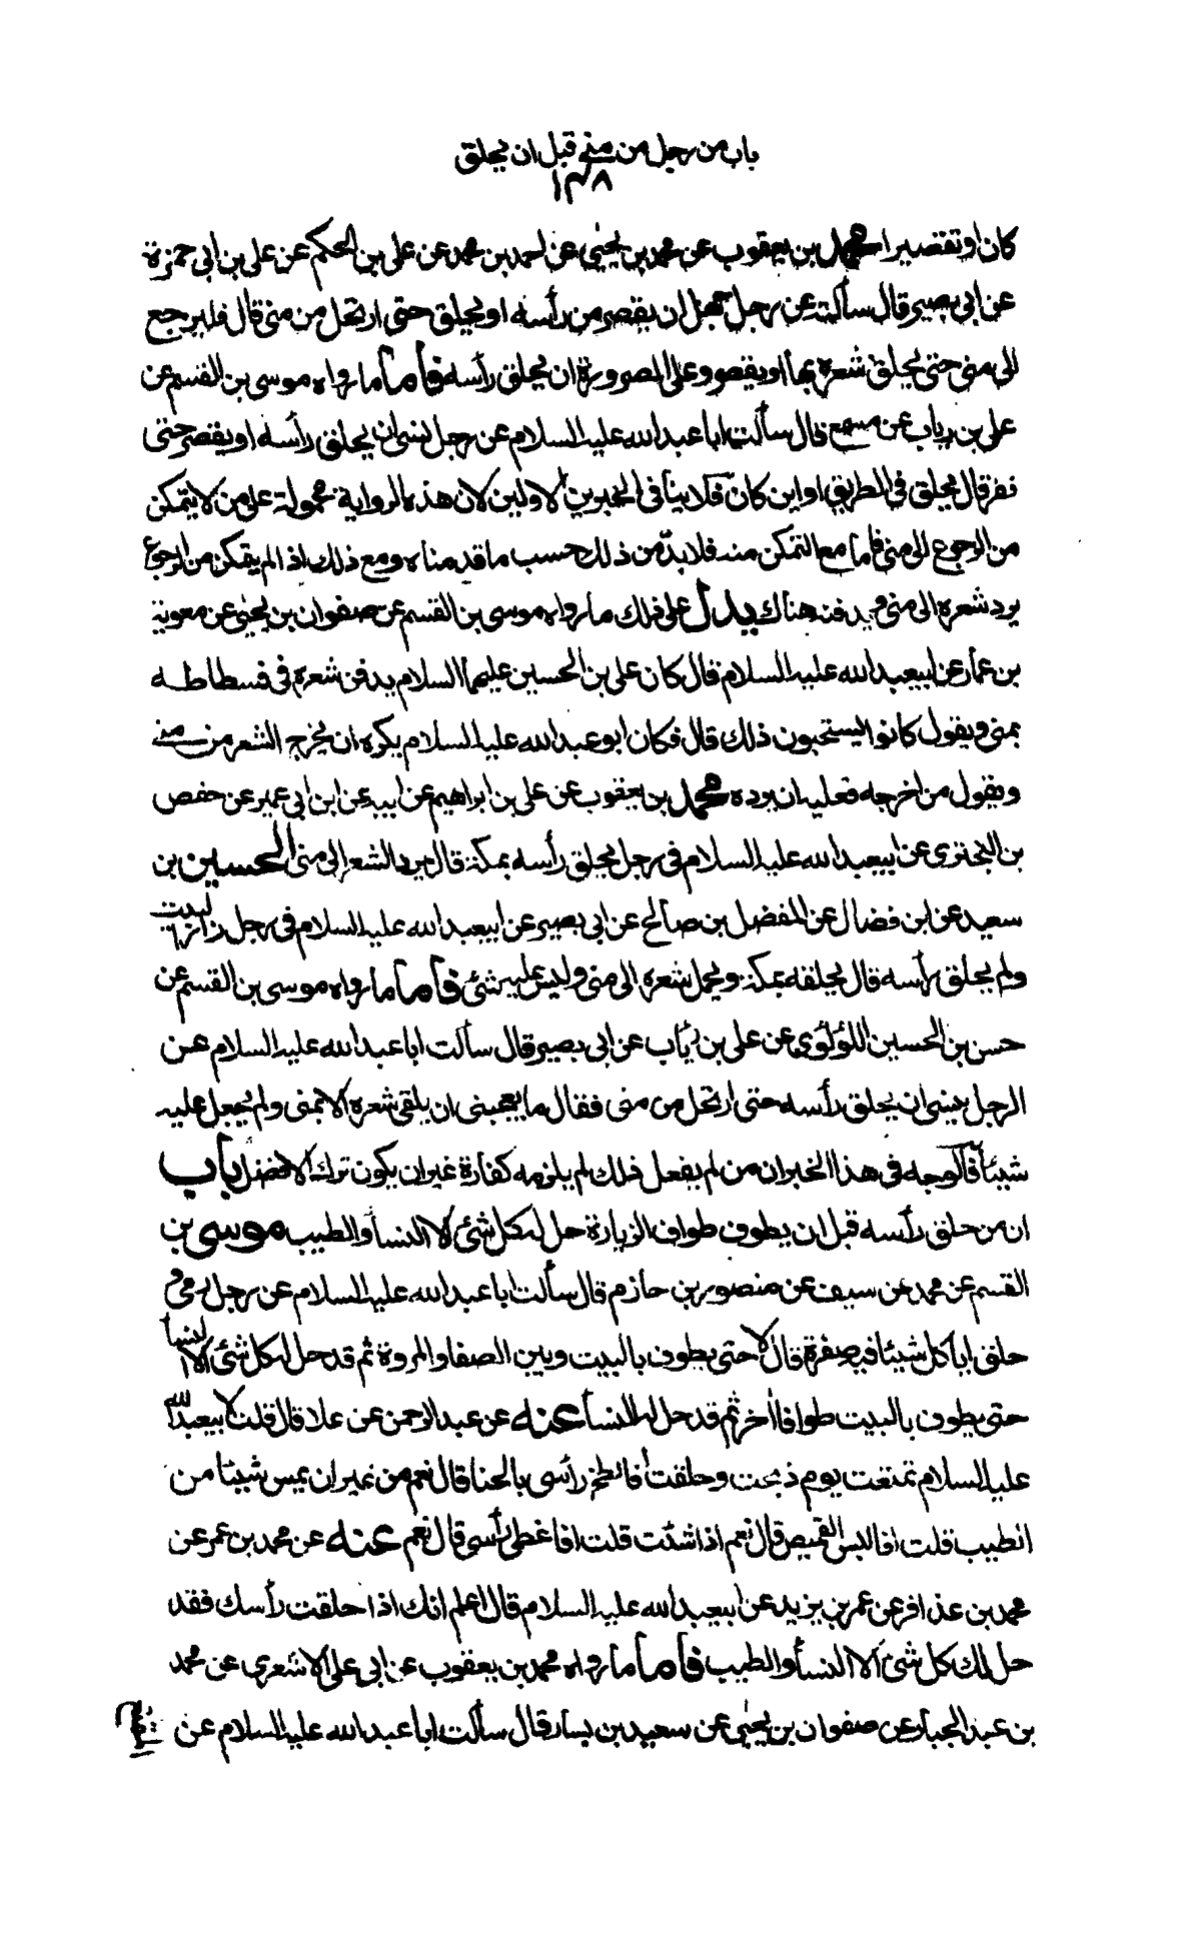 باب من رحل من منى قبل ان يحلق
١٣٨
كان او تقصيرا محمد بن يعقوب عن محمد بن يحيى عن احمد بن محمد عن على بن الحكم عن على بن ابى حمزة
عن ابى بصير قال سألته عن رجل جهل ان يقصر من رأسه او يحلق حتى ارتحل من منى قال فليرجع
الى منى حتى يحلق شعره بها او يقصر وعلى الصرورة ان يحلق رأسه فأما ما رواه موسى بن القسم عن
على بن رياب عن مسمع قال سألت ابا عبد الله عليه السلام عن رجل نسى ان يحلق رأسه او يقصر حتى
نفر قال يحلق فى الطريق او اين كان فلا ينافى الخبرين الاولين لان هذه الرواية محمولة على من لا يتمكن
من الرجوع الى منى فاما مع التمكن منه فلا بد من ذلك حسب ما قدمناه ومع ذلك اذا لم يتمكن من الرجوع
يرد شعره الى منى ويدفنه هناك يدل على ذلك ما رواه موسى بن القسم عن صفوان بن يحيى عن معوية
بن عمار عن ابيعبد الله عليه السلام قال كان على بن الحسين عليهما السلام يدفن شعره فى فسطاطه
بمنى ويقول كانوا يستحبون ذلك قال فكان ابو عبد الله عليه السلام يكره ان يخرج الشعر من منى
ويقول من اخرجه فعليه ان يرده محمد بن يعقوب عن على بن ابراهيم عن ابيه عن ابن ابى عمير عن حفص
بن البخترى عن ابيعبد الله عليه السلام فى رجل يحلق رأسه بمكة قال يرد الشعر الى منى الحسين بن
سعيد عن ابن فضال عن المفضل بن صالح عن ابى بصير عن ابيعبد الله عليه السلام فى رجل زار البيت
ولم يحلق رأسه قال يحلقه بمكة ويحمل شعره الى منى وليس عليه شئ فأما ما رواه موسى بن القسم عن
حسن بن الحسين اللؤلؤي عن على بن رئاب عن ابى بصير قال سألت ابا عبد الله عليه السلام عن
الرجل ينسى ان يحلق رأسه حتى ارتحل من منى فقال ما يعجبنى ان يلقى شعره الا بمنى ولم يجعل عليه
شيئا فالوجه فى هذا الخبر ان من لم يفعل ذلك لم يلزمه كفارة غير ان يكون ترك الافضل باب
ان من حلق رأسه قبل ان يطوف طواف الزيارة حل له كل شئ الا النسأ والطيب موسى بن
القسم عن محمد عن سيف عن منصور بن حازم قال سألت ابا عبد الله عليه السلام عن رجل رمى و
حلق ايأكل شيئا فيه صفرة قال لا حتى يطوف بالبيت وبين الصفا والمروة ثم قد حل له كل شئ الا النسأ
حتى يطوف بالبيت طوافا اخر ثم قد حل له النسأ عنه عن عبد الرحمن عن علا قال قلت لابيعبد الله
عليه السلام تمتعت يوم ذبحت وحلقت أفالطخ رأسى بالحنا قال نعم من غير ان يمس شيئا من
الطيب قلت افالبس القميص قال نعم اذا شئت قلت افاغطى رأسى قال نعم عنه عن محمد بن عمر عن
محمد بن عذافر عن عمر بن يزيد عن ابيعبد الله عليه السلام قال اعلم انك اذا حلقت رأسك فقد
حل لك كل شئ الا النسأ والطيب فأما ما رواه محمد بن يعقوب عن ابى على الاشعرى عن محمد
بن عبد الجبار عن صفوان بن يحيى عن سعيد بن يسار قال سألت ابا عبد الله عليه السلام عن